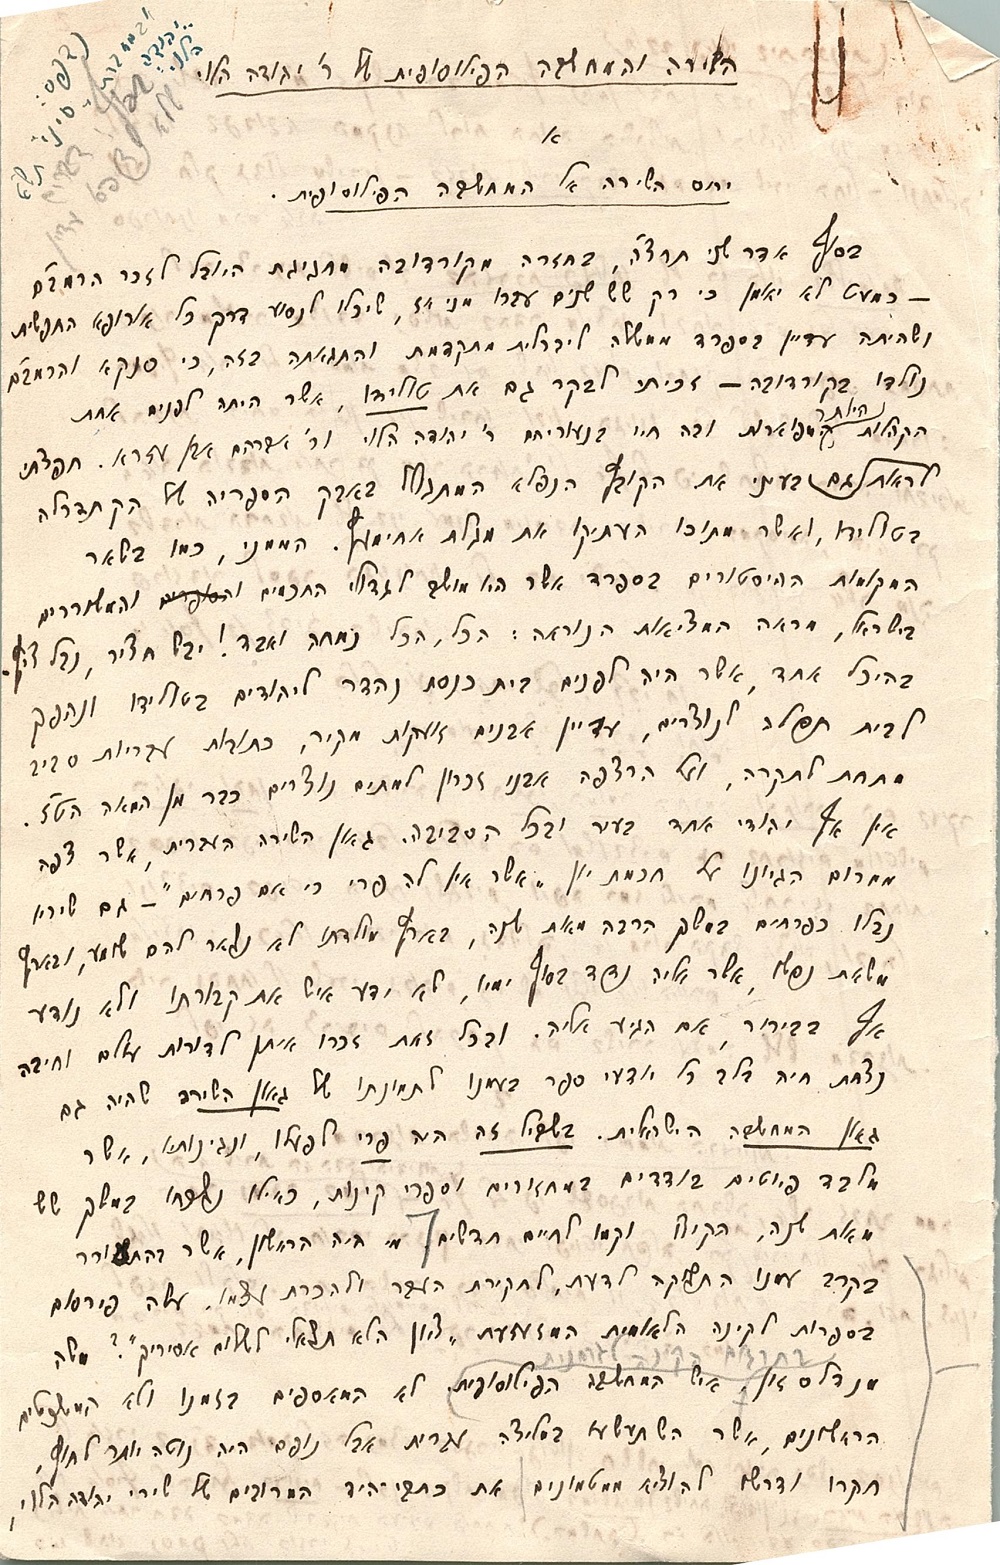 נדפס:
"סיני" תש"א
ובמחברת
"יהודה
הלוי"
השירה והמחשבה הפילוסופית של ר' יהודה הלוי
א
יחס השירה אל המחשבה הפילוסופית.
בסוף אדר שני תרצ"ה, בחזרה מקורדובה מחגיגת היובל לזכר הרמב"ם
– כמעט לא יאמן כי רק שש שנים עברו מני אז, שיכלו לנסוע דרך כל אירופא החפשית
ושהיתה עדיין בספרד ממשלה ליברלית מתקדמת והתגאתה בזה, כי סנקא והרמב"ם
נולדו בקורדובה – זכיתי לבקר גם את טולידו, אשר היתה לפנים אחת
הקהלות היותר מפוארות ובה חיו בנעוריהם ר' יהודה הלוי ור' אברהם אבן עזרא. חפצתי
לראות גם בעיני את הקובץ הנפלא המתגולל באבק הספריה של הקתדרלה
בטולידו, ואשר מתוכו העתיקו את מגלת אחימעץ. הממני, כמו בשאר
המקומות ההיסטורים בספרד אשר היו מושב לגדולי החכמים והסופרים והמשוררים
בישראל, מראה המציאות הנוראה: הכל, הכל נמחה ואבד! יבש חציר, נבל ציץ.
בהיכל אחד, אשר היה לפנים בית כנסת נהדר ליהודים בטולידו ונהפך
לבית תפלה לנוצרים, עדיין אבנים זועקות מקיר, כתובות עבריות סביב
מתחת לתקרה, ועל הרצפה אבני זכרון למתים נוצרים כבר מן המאה הט"ז.
אין אף יהודי אחד בעיר ובכל הסביבה. גאון השירה העברית, אשר צפה
ממרום הגיונו על חכמת יון "אשר אין לה פרי כי אם פרחים" – גם שיריו
נבלו כפרחים במשך הרבה מאות שנה, בארץ מולדתו לא נשאר להם שומע, ובארץ
משאת נפשו, אשר אליה נדד בסוף ימיו, לא ידע איש את קבורתו ולא נודע
אף בבירור, אם הגיע אליה. ובכל זאת זכרו איתן לדורות עולם וחיבה
נצחת חיה בלב כל יודעי ספר בעמנו לתמונתו של גאון השירה שהיה גם
גאון המחשבה הישראלית. בשביל זה היה פרי לפעלו, ונגינותיו, אשר
מלבד פיוטים בודדים במחזורים וספרי קינות, כאילו נשכחו במשך שש
מאות שנה, הקיצו וקמו לחיים חדשים. מי היה הראשון, אשר בהתעורר
בקרב עמנו התשוקה לדעת, לחקירת העבר ולהכרת עצמו, עשה פירסום
בספרות לקינה הלאומית המזעזעת "ציון הלא תשאלי לשלום אסיריך"? משה
בתרגום הקינה לגרמנית
מנדלסזון, איש המחשבה הפילוסופית. לא המאספים בזמנו ולא המשכילים
הראשונים, אשר השתעשעו במליצה עברית אבל נופם היה נוטה יותר לחוץ,
חקרו ודרשו להוציא ממטמונים את כתבי-היד המרובים של שירי יהודה הלוי,